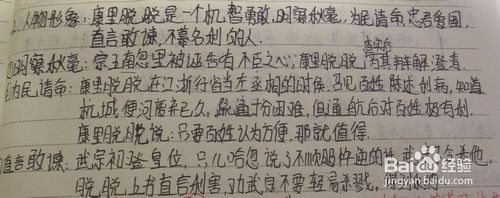 2、人物形象：康里脱脱是一个机智勇敢，明察秋毫，为民请命，忠君爱国，
直言敢谏，不慕名利的人。
明察秋毫：宗王南忽里被诬告有不臣之心，康里脱脱为其辩解澄清。
告密者
为民请命：康里脱脱在江浙行省当左丞相的时候，百姓陈述利病，知道
杭城便河废弃已久，疏通十分困难，但通航后对百姓极有利。
康里脱脱说：只要百姓认为方便，那就值得。
直言敢谏：武宗初登皇位，只儿哈忽说了不顺服悖逆的话，武宗 杀他，
脱脱上书直言利害，劝武宗不要轻易杀戮，得
Baidu经验
jingyan.baidu.com